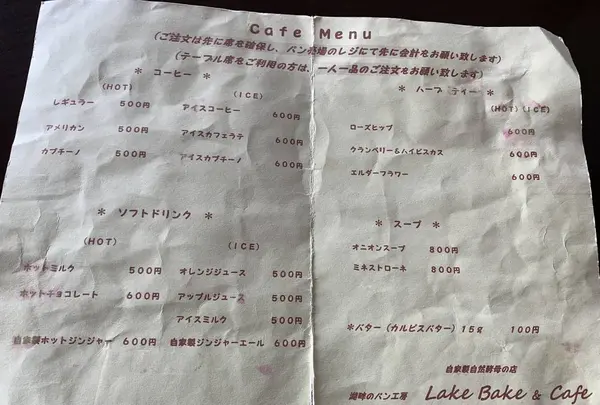 Cafe Menu
(ご注文は先に席を確保し、パン売場のレジにて先に会計をお願い致します)
(テーブル席をご利用の方は、一人一品のご注文をお願い致します)
＊ コーヒー ＊
(HOT) (ICE)
レギュラー 500円 アイスコーヒー 600円
アメリカン 500円 アイスカフェラテ 600円
カプチーノ 500円 アイスカプチーノ 600円
＊ ソフトドリンク ＊
(HOT) (ICE)
ホットミルク 500円 オレンジジュース 500円
ホットチョコレート 600円 アップルジュース 500円
アイスミルク 500円
自家製ホットジンジャー 600円 自家製ジンジャーエール 600円
＊ ハーブティー ＊
(HOT)(ICE)
ローズヒップ 600円
クランベリー&ハイビスカス 600円
エルダーフラワー 600円
＊ スープ ＊
オニオンスープ 800円
ミネストローネ 800円
＊バター(カルピスバター)15g 100円
自家製自然酵母の店
湖畔のパン工房 Lake Bake & Cafe